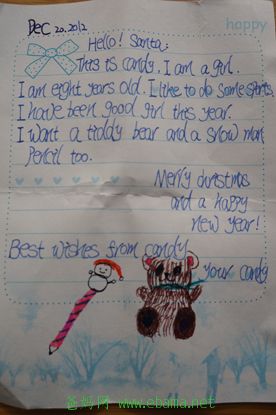 Dec 20.2012
happy
Hello! Santa:
This is candy. I am a girl.
I am eight years old. I like to do some sports.
I have been good girl this year.
I want a tiddy bear and a snow man
Pencil too.
Merry christmas
and a happy
new year!
Best wishes from candy
your candy
爸妈网 www.ebama.net